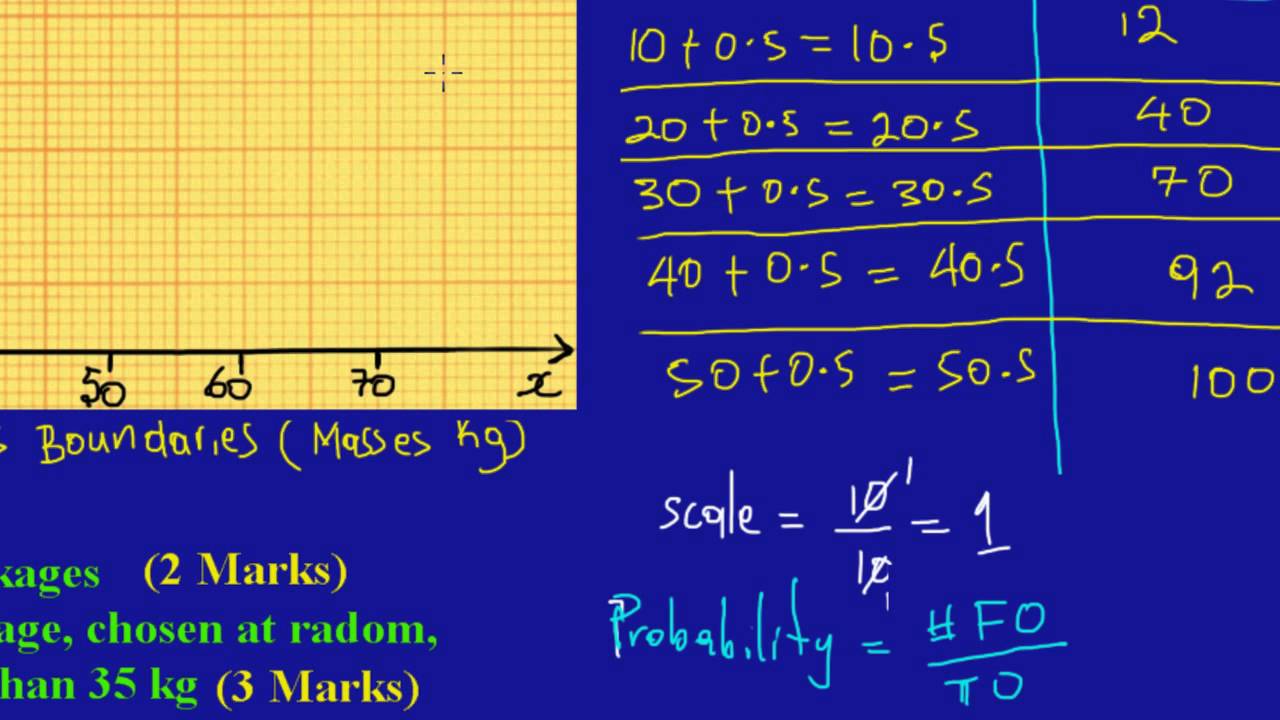 10 + 0.5 = 10.5 12
20 + 0.5 = 20.5 40
30 + 0.5 = 30.5 70
40 + 0.5 = 40.5 92
50 + 0.5 = 50.5 100
50 60 70 x
Boundaries (Masses kg)
scale = 10/10 = 1
1
1
kages (2 Marks)
age, chosen at radom,
han 35 kg (3 Marks)
Probability = #FO
TO